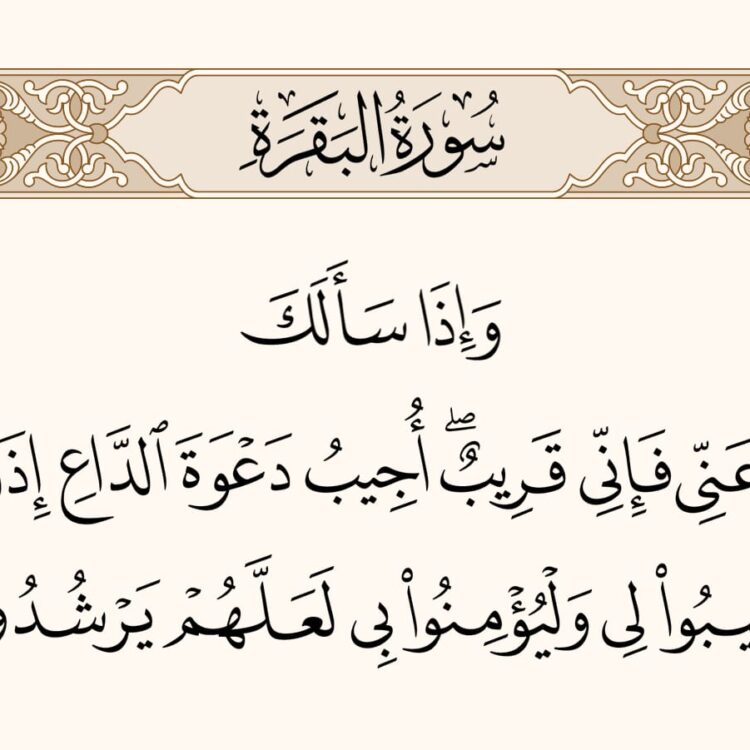 سُورَةُ البَقَرَةِ
وَإِذَا سَأَلَكَ
عَنِّي فَإِنِّي قَرِيبٌۖ أُجِيبُ دَعۡوَةَ ٱلدَّاعِ إِذَ
يبُواْ لِي وَلۡيُؤۡمِنُواْ بِي لَعَلَّهُمۡ يَرۡشُدُو